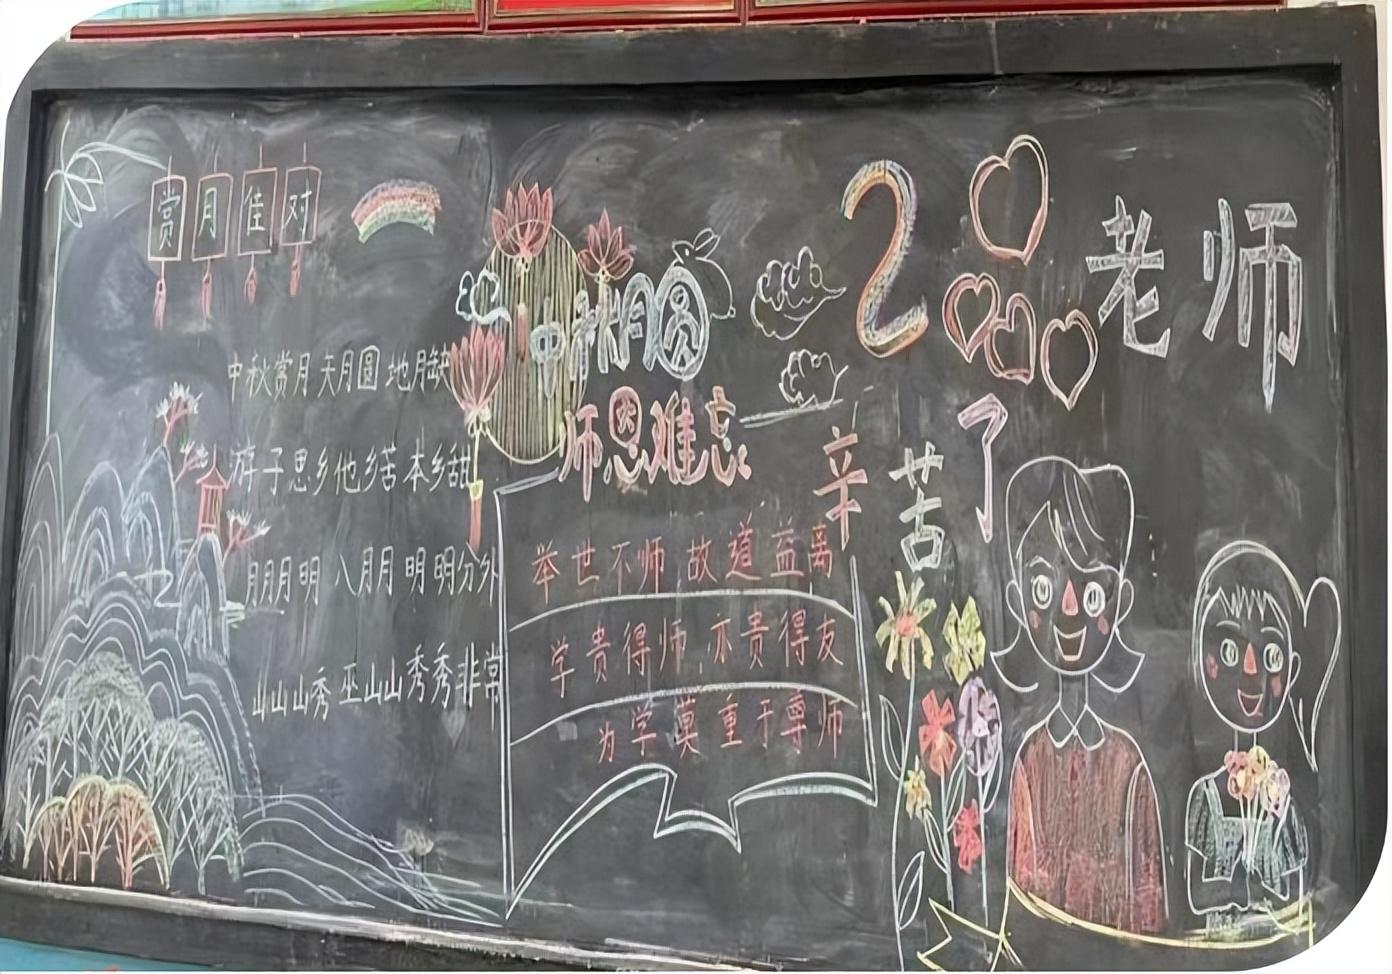 赏月佳对
中秋赏月天月圆地月缺
游子思乡他乡苦本乡甜
月月月明八月月明明分外
山山山秀巫山山秀秀非常
中秋月圆
师恩难忘
举世不师故道益离
学贵得师亦贵得友
为学莫重于尊师
2
老师
辛苦了